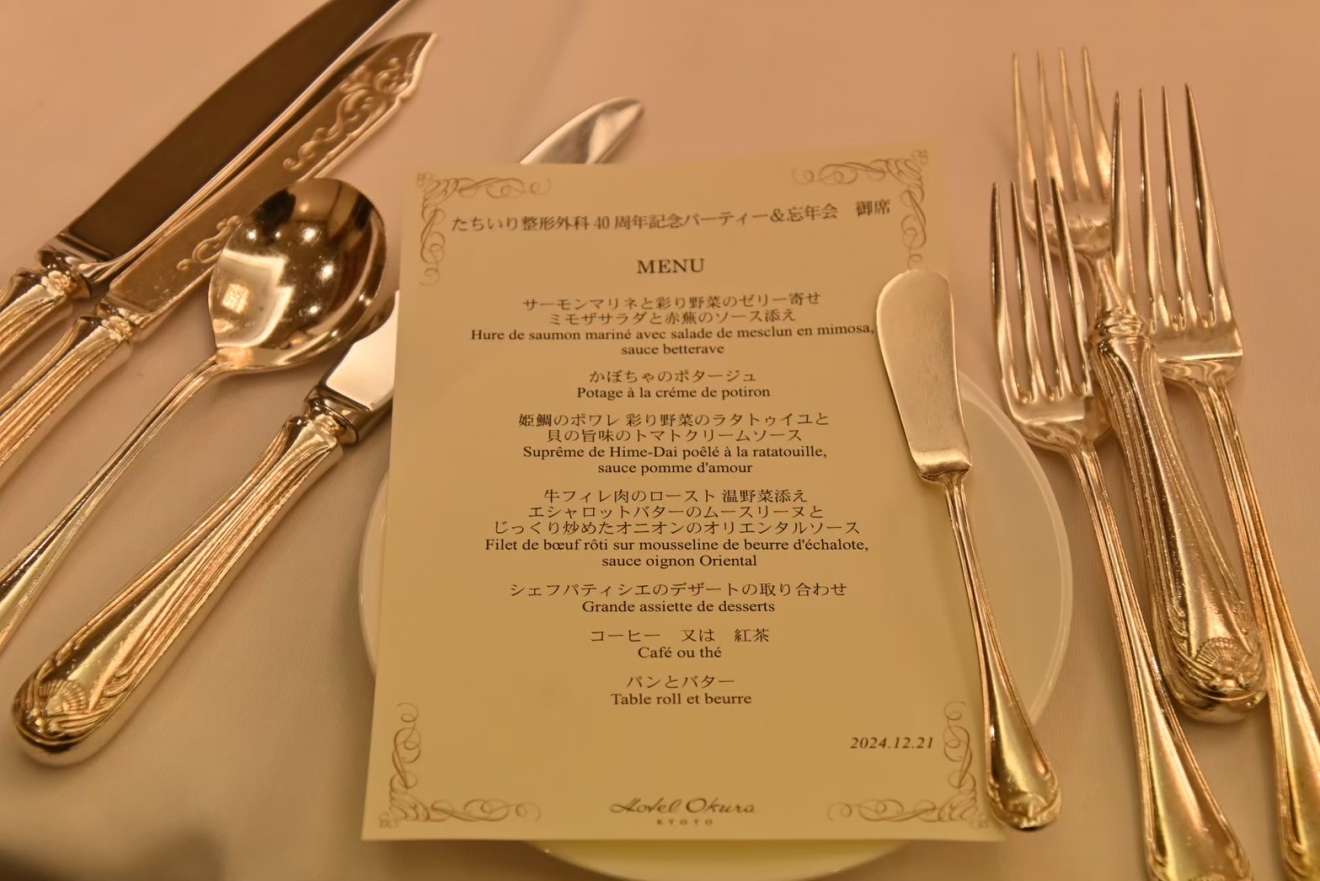 たちいり整形外科 40 周年記念パーティー＆忘年会　御席
MENU
サーモンマリネと彩り野菜のゼリー寄せ
ミモザサラダと赤蕪のソース添え
Hure de saumon mariné avec salade de mesclun en mimosa,
sauce betterave
かぼちゃのポタージュ
Potage à la créme de potiron
姫鯛のポワレ 彩り野菜のラタトゥイユと
貝の旨味のトマトクリームソース
Suprême de Hime-Dai poêlé à la ratatouille,
sauce pomme d'amour
牛フィレ肉のロースト 温野菜添え
エシャロットバターのムースリーヌと
じっくり炒めたオニオンのオリエンタルソース
Filet de bœuf rôti sur mousseline de beurre d'échalote,
sauce oignon Oriental
シェフパティシエのデザートの取り合わせ
Grande assiette de desserts
コーヒー　又は　紅茶
Café ou thé
パンとバター
Table roll et beurre
2024.12.21
Hotel Okura
KYOTO